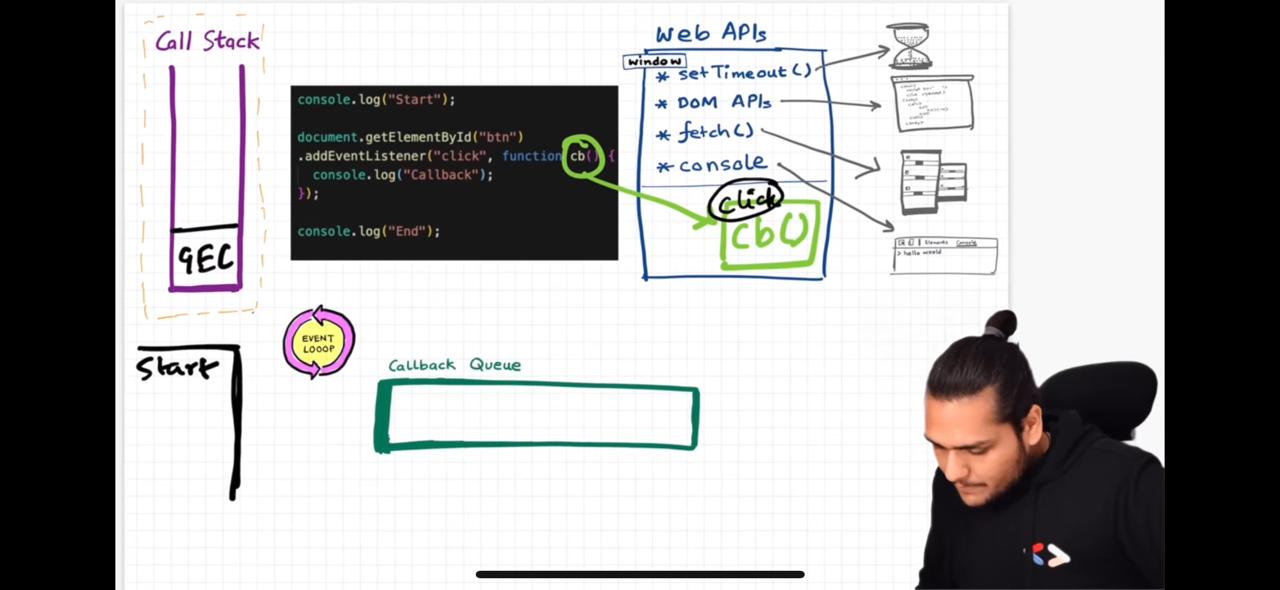 Call Stack
GEC
console.log("Start");
document.getElementById("btn")
.addEventListener("click", function cb() {
console.log("Callback");
});
console.log("End");
Web APIs
window
* setTimeout()
* DOM APIs
* fetch()
* console
click
cb()
Elements Console
> hello world
Start
EVENT
LOOOP
Callback Queue